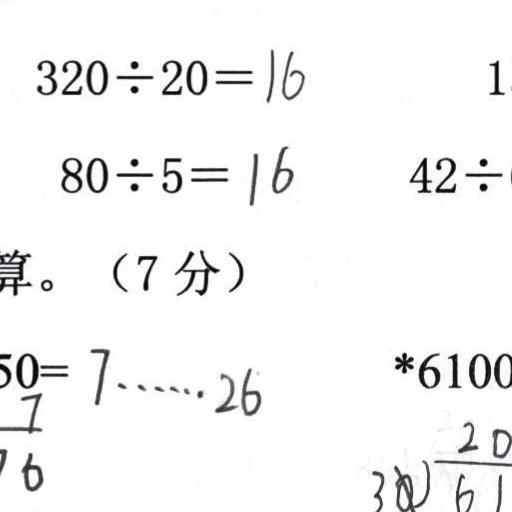 320÷20=16 1
80÷5=16 42÷
算。(7分)
50=7……26 *6100
7 20
76 30 61